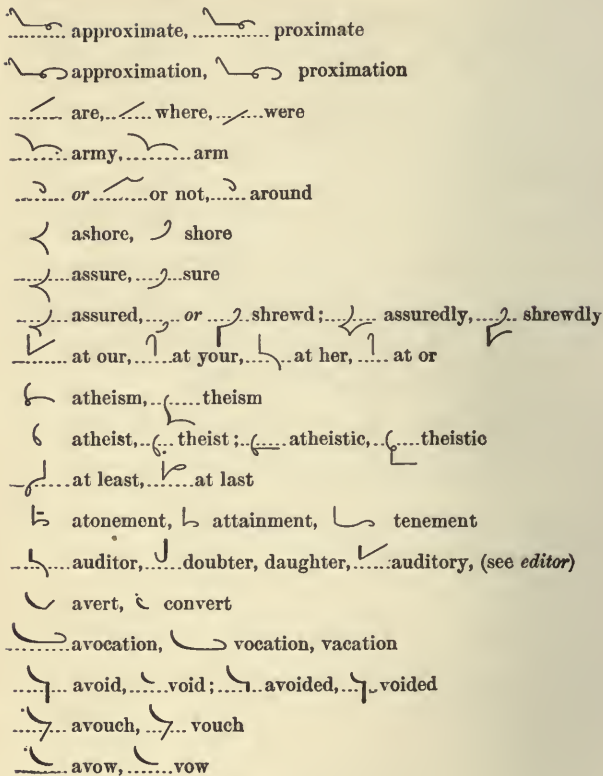 approximate, proximate
approximation, proximation
are, where, were
army, arm
or or not, around
ashore, shore
assure, sure
assured, or shrewd; assuredly, shrewdly
at our, at your, at her, at or
atheism, theism
atheist, theist; atheistic, theistic
at least, at last
atonement, attainment, tenement
auditor, doubter, daughter, auditory, (see editor)
avert, convert
avocation, vocation, vacation
avoid, void; avoided, voided
avouch, vouch
avow, vow